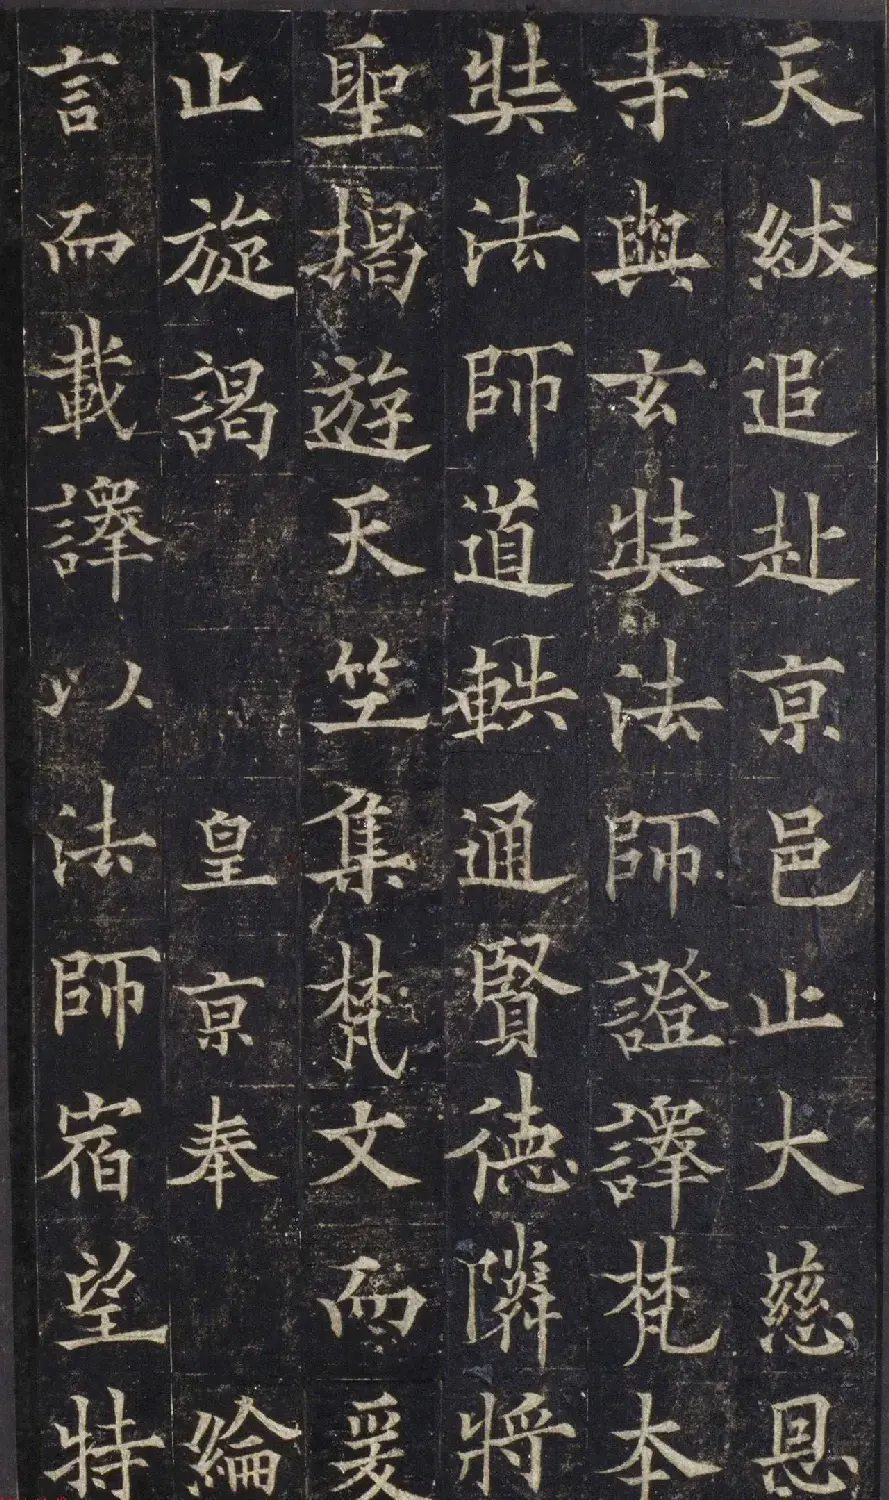 天紱追赴亰邑止大慈恩
寺與玄奘法師證譯梵本
奘法師道軼通賢德隣將
聖揭遊天竺集梵文而爰
止旋謁　　皇亰奉　綸
言而載譯以法師宿望特